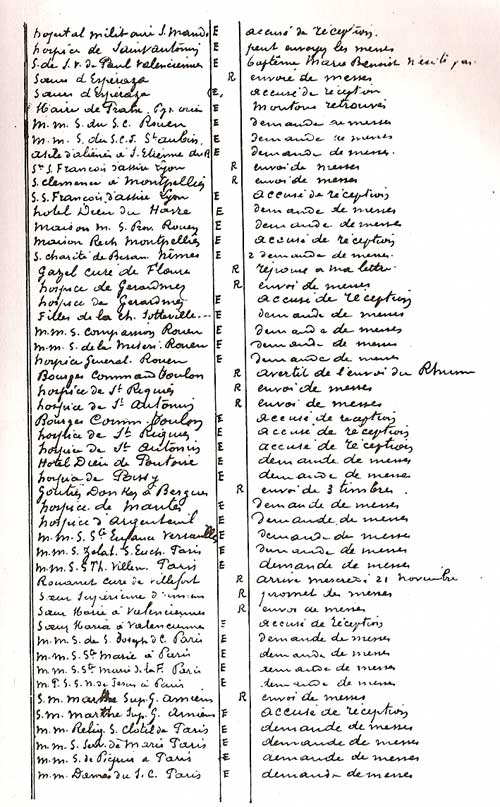 hopital militaire S. Mandé E accusé de réception.
hospice de Saint antonin E peut envoyer les messes
S. de S. V. de Paul Valenciennes E Capitème Marie Benoit n'écrit pas
Sœurs d'Espéraza R envoie de messes
Sœurs d'Espéraza E, accusé de réception
Maire de Prats. Pyr. orie E moutons retrouvés
M.M. S. du S.C. Rouen E demande de messes
M.M. S. du S.C.J. St aubin, E demande de messes
asile d'aliénés à S. Etienne du R E demande de messes.
St S. François d'assise Lyon R envoi de messes
S. clemence à Montpellier R envoi de messes
S.S. François d'assise Lyon E accusé de réception
hotel Dieu du Havre E demande de messes.
Maison M. S. Rouen E demande de messes
Maison Rech Montpellier E accusé de réception
S. charité de Besan. Nîmes E 2 demande de messes.
Gazel curé de Floure R réponse a ma lettre.
hospice de Gerardmer R envoi de messes
hospice de Gerardmer E accusé de réception
Filles de la Ch. Sotteville E demande de messes.
M.M. S. Compassion Rouen E demande de messes
M.M. S. de la Miséri. Rouen E demande de messes
hospice General. Rouen E demande de messes
Bourges Command Toulon R avertit de l'envoi du Rhum
hospice de St Riquier R envoi de messes
hospice de St Antonin R envoi de messes
Bourges Comm. Toulon E accusé de réception
hospice de St Riquier E accusé de réception
hospice de St Antonin E accusé de réception
Hotel Dieu de Pontoise E demande de messes
hospice de Poissy E demande de messes
à Bergues R envoi de 3 timbres.
hospice de Mantes E demande de messes
hospice d'argenteuil E demande de messes
M.M. S. Ste Enfance Versailles E demande de messes
M.M. S. Zélat. S. Euch. Paris E demande de messes
M.M. S. S Th. Villen. Paris E demande de messes
Rouanet curé de Villefort R arrive mercredi 21 Novembre
Sœur Supérieure R promet des messes
Sœur Maria à Valenciennes R envoi de messes
Sœur Maria à Valenciennes E accusé de réception
M.M. S. de S. Joseph d C. Paris E demande de messes
M.M. S. Ste Marie à Paris E demande de messes
M.M. S. Ste Marie de la F. Paris E demande de messes
M.P. S. S. N. de Jesus à Paris E demande de messes
S.M. Marthe Sup. G. Amiens R envoi de messes
S.M. Marthe Sup. G. Amiens E accusé de réception
M.M. Relig. S. Clotil de Paris E demande de messes
M.M. S. Serv. de Marie Paris E demande de messes
M.M. S. de Picpus a Paris E demande de messes
M.M. Dames du S.C. Paris E demande de messes